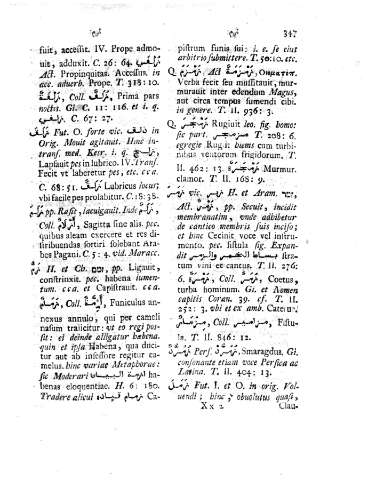 زلف
زمر
347
fuit, accessit. IV. Prope admo-
uit, adduxit. C. 26: 64. زُلْفَى
Act. Propinquitas. Accessus. in
acc. adverb. Prope. T. 318: 10.
زُلْفَةٌ, Coll. زُلَفٌ, Prima pars
noctis. Gl. C. 11: 116. et i. q.
C. 67: 27.
زلق Fut. O. forte vic. دلف in
Orig. Mouit agitauit. Hinc in-
transf. med. Kesr. i. q.
Lapsauit pes in lubrico. IV. transf.
Fecit vt laberetur pes, etc. cca.
C. 68: 51. زَلَقٌ Lubricus locus;
vbi facile pes prolabitur. C. 18: 38.
زلم pp. Rasit, laeuigauit. Inde زَلَمٌ,
Coll. أَزْلَامٌ, Sagitta sine alis. pec.
quibus aleam exercere et res di-
stribuendas sortiri solebant Ara-
bes Pagani. C. 5: 4. vid. Maracc.
زم H. et Ch. זמם, pp. Ligauit,
constrinxit. pec. habena iumen-
tum. cca. et Capistrauit. cca.
زِمَامٌ, Coll. أَزِمَّةٌ, Funiculus an-
nexus annulo, qui per cameli
nasum traiicitur: vt eo regi pos-
sit: ei deinde alligatur habena.
quin et ipsa Habena, qua duci-
tur aut ab insessore regitur ca-
melus. hinc variae Metaphorae:
sic Moderari ازمة البيان ha-
benas eloquentiae. H. 6: 180.
Tradere alicui زمام قياده Ca-
pistrum funis sui: i. e. se eius
arbitrio submittere. T. 50: 10. etc.
Q. زمزم, Act. زَمْزَمَةٌ, Onomatop.
Verba fecit seu mussitauit, mur-
murauit inter edendum Magus,
aut circa tempus sumendi cibi.
in genere. T. II. 936: 3.
Q. زمجر Rugiuit leo. fig. homo:
sic part. مزمجر T. 208: 6.
egregie Rugit hiems cum turbi-
nibus ventorum frigidorum. T.
II. 462: 13. زمجرة Murmur.
clamor. T. II. 168: 9.
زمر vic. H. et Aram. זמר,
Act. زَمْرٌ, pp. Secuit, incidit
membranatim, vnde adhibetur
de cantico membris suis inciso;
et hinc Cecinit voce vel instru-
mento. pec. fistula sig. Expan-
dit بساط الخمر والزمر stra-
tum vini et cantus. T. II. 276:
6. زُمْرَةٌ, Coll. زُمَرٌ, Coetus,
turba hominum. Gl. et Nomen
capitis Coran. 39. cf. T. II.
252: 3. vbi et ex amb. Cateruae.
مِزْمَارٌ, Coll. مزامير, Fistu-
la. T. II. 846: 12.
زُمُرُّدٌ Pers. زمرد, Smaragdus, Gl.
consonante etiam voce Persica ac
Latina. T. II. 404: 13.
زمل Fut. I. et O. in orig. Vol-
uendi; hinc obuolutus quasi,
Xx 2
Clau-